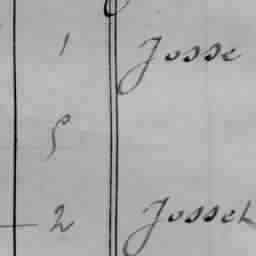 1 Josse
5
2 Josseh